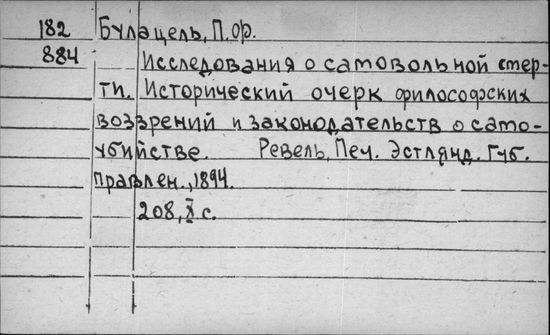 182 Булацель, П.Ф.
884 Исследования о самовольной смер-
ти. Исторический очерк философских
воззрений и законодательств о само-
убийстве. Ревель, Печ. Эстлянд. Губ.
правлен., 1894.
208, X с.